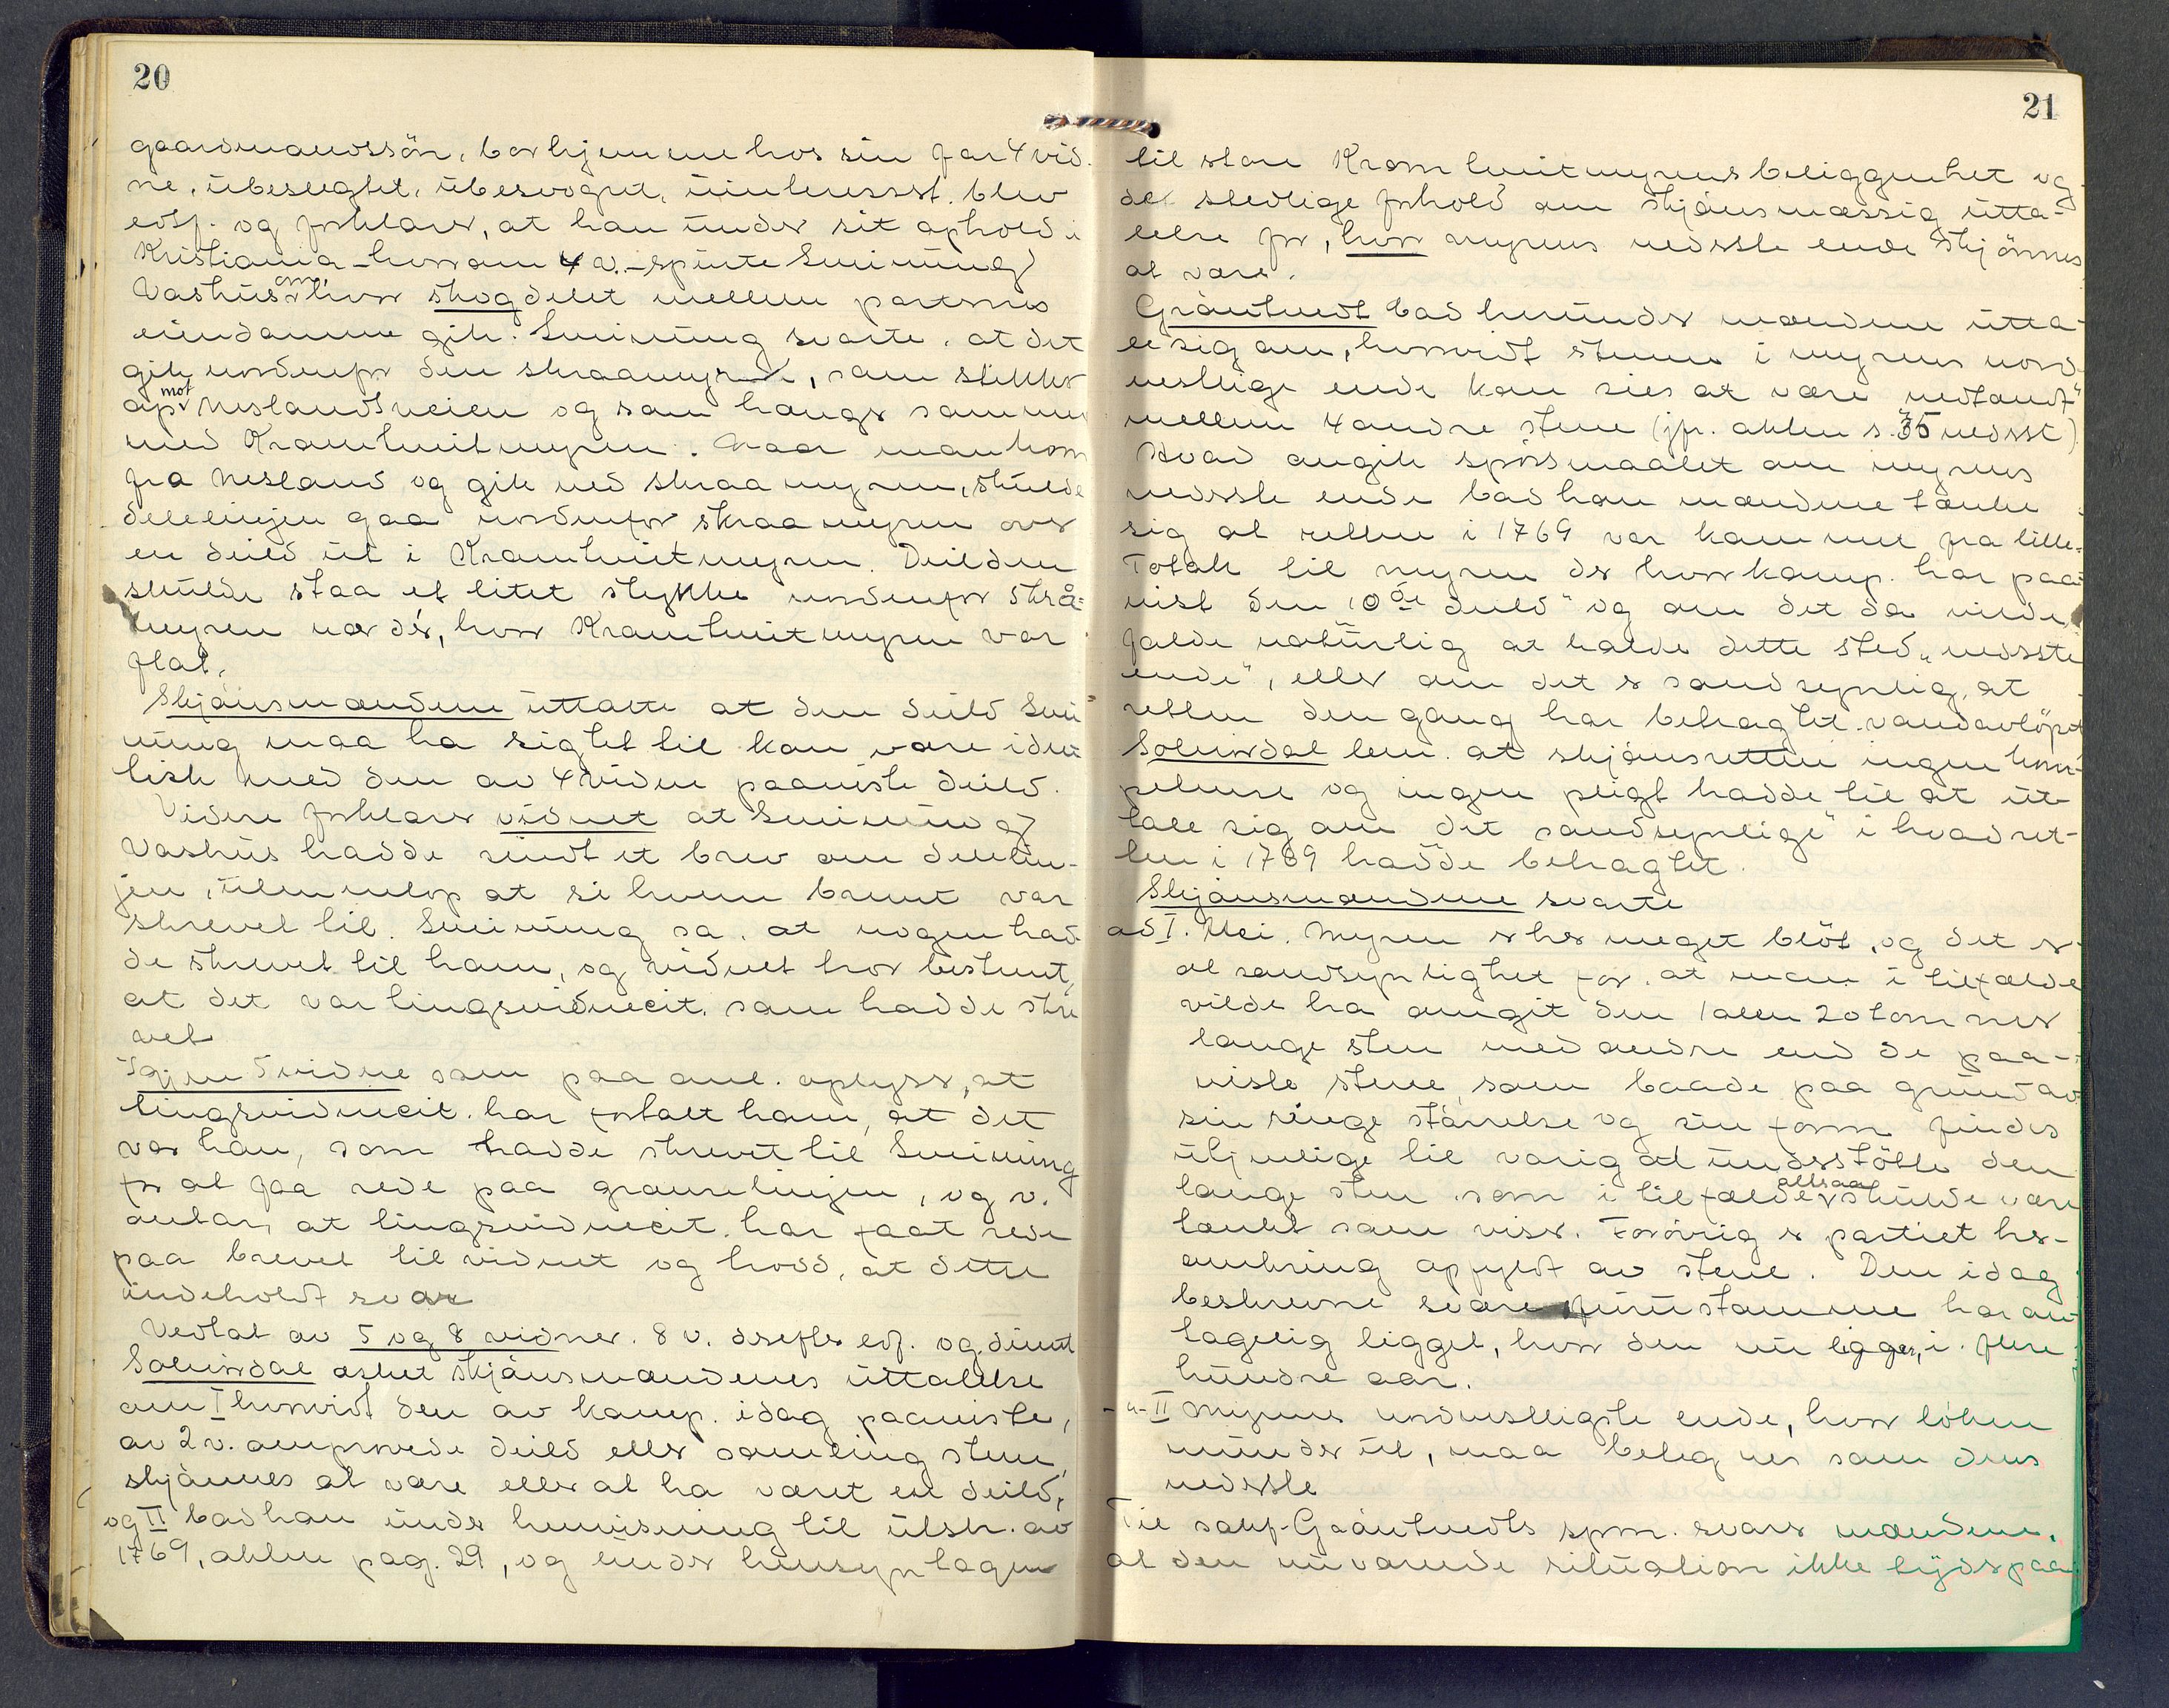 20
gaardmandssön, bor hjemme hos sin far 4 vid-
ne, ubeslegtet, ubesvogret, uinteressert. blev
edsf. og forklarer, at han under sit ophold i
Kristiania – hvorom 4 v. – spurte Smimung
Vashus om, hvor skogdelet mellem parternes
eiendomme gik. Smimung svarte, at det
gik nordenfor den skraamyren, som stikker
op mot Neslandsveien og som hænger sammen
med Kromtveitmyren. Naar man kom
fra Nesland og gik ned skraamyren, skulde
delelinjen gaa nordenfor skraamyren over
en deild ut i Kromtveitmyren. Deilden
skulde staa et litet stykke nordenfor skrå-
myren nær dér, hvor Kromtveitmyren var
flat.
Skjönsmændene uttalte at den deild Smi-
mung maa ha sigtet til kan være iden-
tisk med den av 4 vidne paaviste deild.
Videre forklarer vidnet at Smimung
Vashus hadde sendt et brev om delelin-
jen, uten netop at si hvem brevet var
skrevet til. Smimung sa, at nogen had-
de skrevet til ham, og vidnet tror bestemt,
at det var tingsvidnecit. som hadde skre-
vet
Igjen 5 vidne som paa anl. oplyser, at
tingsvidnecit. har fortalt ham, at det
var han, som hadde skrevet til Smimung
for at faa rede paa grænselinjen, og v.
antar, at tingsvidnecit. har faat rede
paa brevet til vidnet og hvad, at dette
indeholdt svar
Vedtat av 5 og 8 vidner. 8 v. derefter edf. og dimit
Solvirdal æsket skjönsmændenes uttalelse
om I hvorvidt den av komp. idag paaviste,
av 2 v. omprovede deild eller samling stene,
skjönnes at være eller at ha været en deild,
og II bad han under henvisning til utskr. av
1769, akten pag. 29, og under hensyntagen
21
til store Kromtveitmyrens beliggenhet og
det stedlige forhold om skjönsmæssig utta-
lelse for, hvor myrens nedste ende skjönnes
at være.
Gråntvedt bad herunder mændene utta-
le sig om, hvorvidt stenen i myrens nord-
vestlige ende kan sies at være nedsandt"
mellem 4 andre stene (jfr. akten s. 35 nederst).
Hvad angik spörsmaalet om myrens
nedste ende bad han mændene tænke
sig at retten i 1769 var kommet fra lille-
Totak til myren der hvor komp. har paa-
vist den 10de deild" og om det da vilde
falde naturlig at kalde dette sted „nedste
ende", eller om det er sandsynlig, at
retten den gang har betragtet vandavlöpet
Solvirdal bem. at skjönsretten ingen kom-
petense og ingen pligt hadde til at ut-
tale sig om "det sandsynlige" i hvad ret-
ten i 1769 hadde betragtet.
Skjönsmændene svarte
ad I. Nei. Myren er her meget blöt, og det er
al sandsynlighet for, at man i tilfælde
vilde ha omgit den 1 alen 20 tommer
lange sten med andre end de paa-
viste stene, som baade paa grund av
sin ringe störrelse og sin form findes
utjenlige til varig at understötte den
lange sten som i tilfælde altsaa skulde være
tænkt som viser. Forövrig er partiet her-
omkring opfyldt av stene. Den idag
beskrevne svære furustamme har an-
tagelig ligget, hvor den nu ligger, i flere
hundre aar.
- " - II Myrens nordvestligste ende, hvor löken
munder ut, maa betegnes som dens
nedste
Til sakf. Gråntvedts spm. svarer mændene,
at den nuværende situation ikke tyder paa